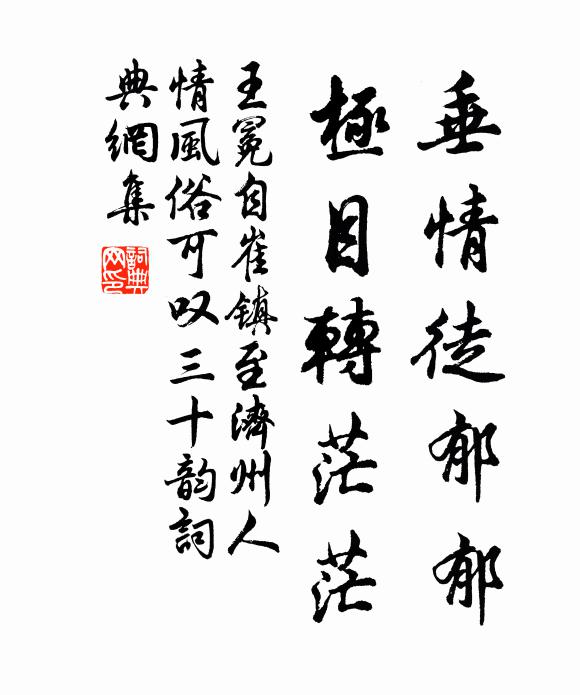 垂情徒郁郁
極目轉茫茫
王冕自崔鎮至濟州人
情風俗可叹三十韵詞
典網集
詞典網印